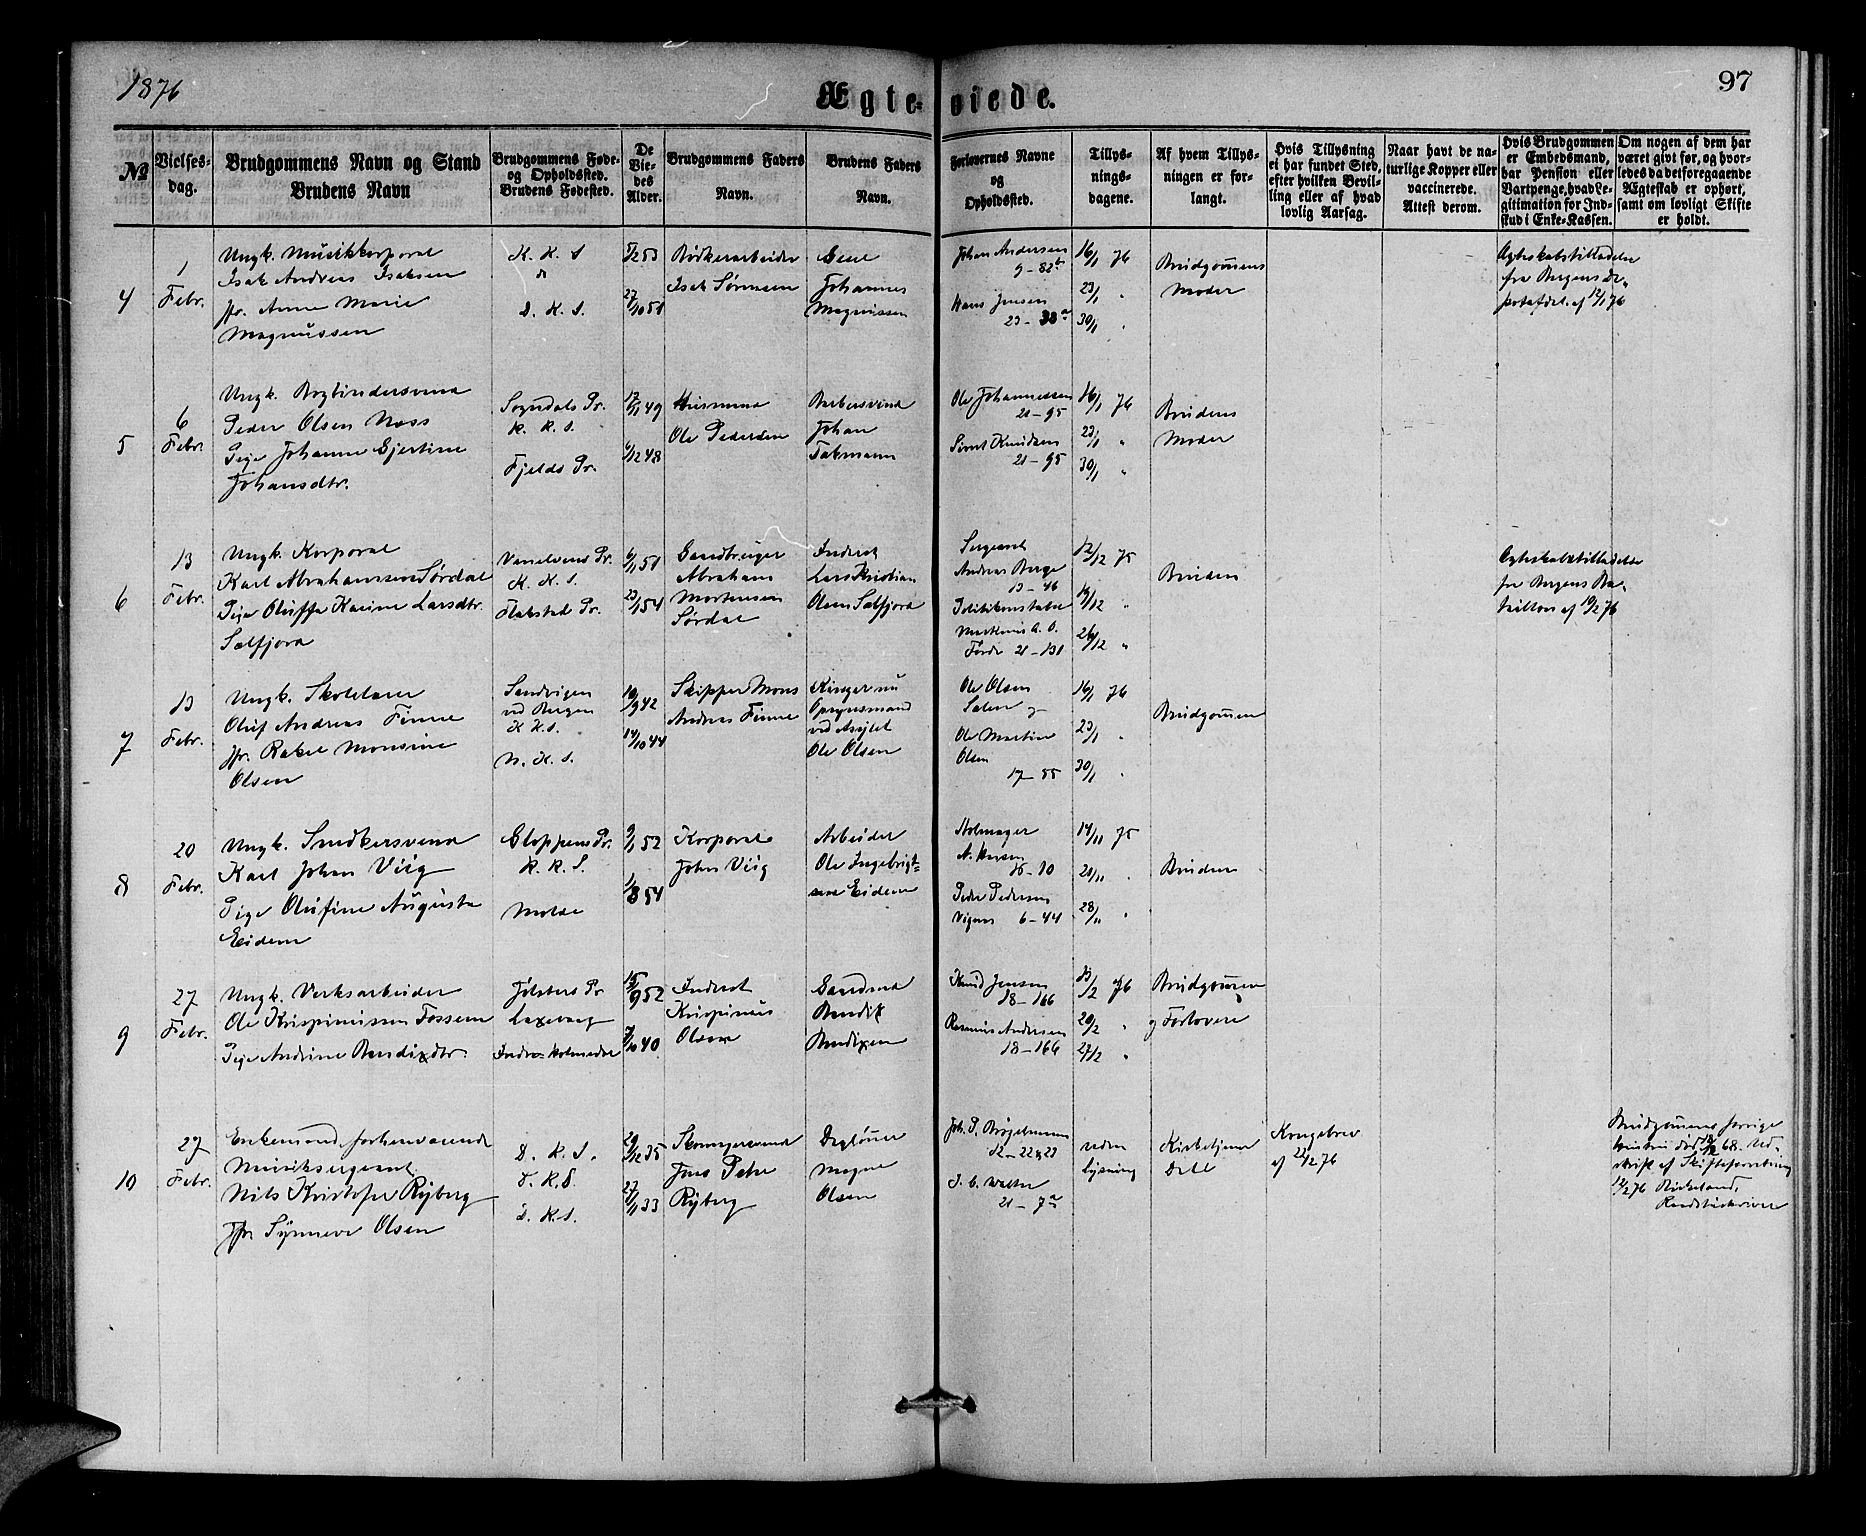 1876
Ægteviede.
97
№
Vielses-
dag.
Brudgommens Navn og Stand
Brudens Navn
Brudgommens Føde-
og Opholdssted.
Brudens Fødested.
De
Vie-
des
Alder.
Brudgommens Faders
Navn.
Brudens Faders
Navn.
Forlovernes Navne
og
Opholdssted.
Tillys-
nings-
dagene.
Af hvem Tillys-
ningen er for-
langt.
Hvis Tillysning
ei har fundet Sted,
efter hvilken Bevil-
ling eller af hvad
lovlig Aarsag.
Naar havt de na-
turlige Kopper eller
vaccinerede.
Attest derom.
Hvis Brudgommen
er Embedsmand,
har Pension eller
Vartpenge, hvad Le-
gitimation for Ind-
skud i Enke-Kassen.
Om nogen af dem har
været givt før, og hvor-
ledes da det foregaaende
Ægteskab er ophørt,
samt om lovligt Skifte
er holdt.
4
1
Febr.
Ungk. Musikkorporal
Isak Andreas Isaksen
Jfr. Anne Marie
Magnussen
K. K. S
D. K. S.
27/10 51
Bødkerarbeider
Isak Sørensen
Johannes
Magnussen
Johan Andersen
Hans Jensen
16/1 76
23/1 "
30/1 "
Brudgommens
Moder
Ægteskabstilladelse
fra Bergens De-
potafdel. af 12/1 76
5
6
Febr.
Ungk. Bogbindersvend
Peder Olsen Næss
Pige Johanne Gjertine
Johansdtr.
Sogndals Pr.
K. K. S.
Fjelds Pr.
17/1 49
6/12 48
Husmand
Ole Pedersen
Barbersvend
Johan
Fakmann
Ole Johannessen
21 - 95
Sivert Knudsen
21 - 95
16/1 76
23/1 "
30/1 "
Brudens
Moder
6
13
Febr.
Ungk. Korporal
Karl Abrahamsen Sørdal
Pige Oluffa Karine Larsdtr.
Selfjord
Vanelvens Pr.
K. K. S.
Flakstad Pr.
6/1 51
23/1 54
Gaardbruger
Abraham
Mortensen
Sørdal
Inderst
Lars Kristian
Olsen Selfjord
Sergeant
Andreas Berge
13 - 46
Politikonstabel
Førde 21 - 131
12/12 75
19/12 "
26/12 "
Bruden
Ægteskabstilladelse
fra Bergens Ba-
taillon af 10/2 76
7
13
Febr.
Ungk. Skolelærer
Oluf Andreas Finne
Jfr. Rakel Monsine
Olsen
Sandvigen
ved Bergen
K. K. S.
N. K. S.
10/9 42
14/10 44
Skipper Mons
Andreas Finne
Ringer nu
Opsynsmand
ved Asylet
Ole Olsen
Ole Olsen
Ole Martin
Olsen
17 - 55
16/1 76
23/1 "
30/1 "
Brudgommen
8
20
Febr.
Ungk. Snedkersvend
Karl Johan Viig
Pige Olufine Augusta
Eidem
Gloppens Pr.
K. K. S.
Molde
9/1 52
1/8 54
Korporal
John Viig
Arbeider
Ole Ingebrigt-
sen Eidem
N. Hansen
Peder Pedersen
6 - 44
14/11 75
21/11 "
28/11 "
Bruden
9
27
Febr.
Ungk. Verksarbeider
Ole Krispinussen Fossem
Pige Andrine Bendixdtr.
Jølsters Pr.
Laxevaag
Indre Holmedal
15/9 52
7/10 40
Inderst
Krispinus
Olsen
Gaardmd
Bendix
Bendixen
Knud Jensen
18 - 166
Rasmus Andersen
18 - 166
13/2 76
20/2 "
27/2 "
Brudgommen
og Forlovere
10
27
Febr.
Enkemand forhenværende
Musiksergeant
Nils Kristofer Ryberg
Jfr. Synneve Olsen
D. K. S.
D. K. S.
D. K. S.
29/12 35
27/1 33
Skomagersvend
Jens Peter
Ryberg
Dagløner
Mogne
Olsen
21 - 7
uden
lysning
Kirketjener
Dahl
Kongebrev
af 22/2 76
Brudgommens forrige
hustru død 68. Ud-
skrift af Skifteforretning
12/2 76 Birkeland,